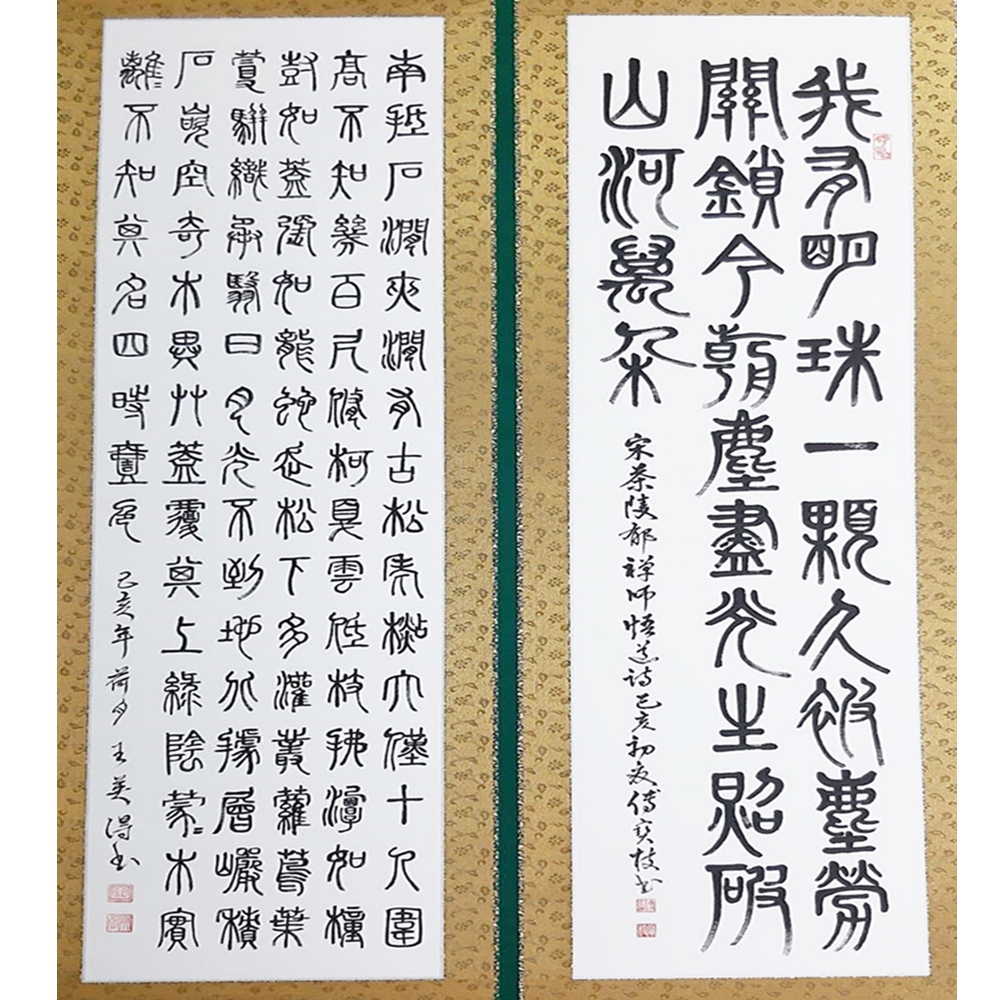 我有明珠一顆久被塵勞
關鎖今朝塵盡光生照破
山河萬朵
宋茶陵郁禪師悟道詩己亥初夏傅寶枝書
南抵石澗夾澗有古松老杉大僅十人圍
高不知幾百尺修柯戛雲低枝拂潭如幢
尌如蓋張如龍蛇走松下多灌叢蘿蔦葉
蔓駢織承翳日月光不到地據層巖積
石嵌空奇木異艸蓋覆其上綠陰蒙〻木實
離〻不知其名四時壹色
己亥年荷月王美得書